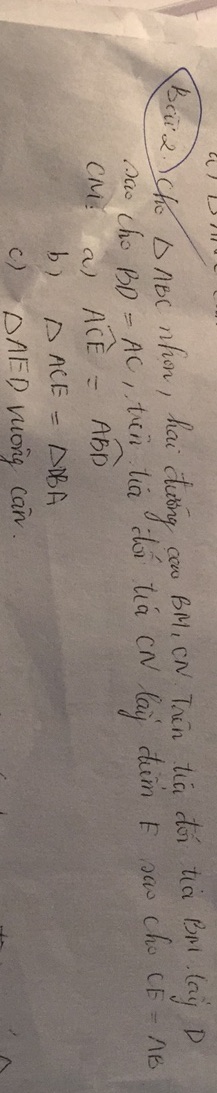 Bài 2. Cho △ABC nhọn, hai đường cao BM, CN. Trên tia đối tia BM lấy D
sao cho BD = AC, trên tia đối tia CN lấy điểm E sao cho CE = AB
CM: a) ACE = ABD
b) △ACE = △DBA
c) △AED vuông cân.